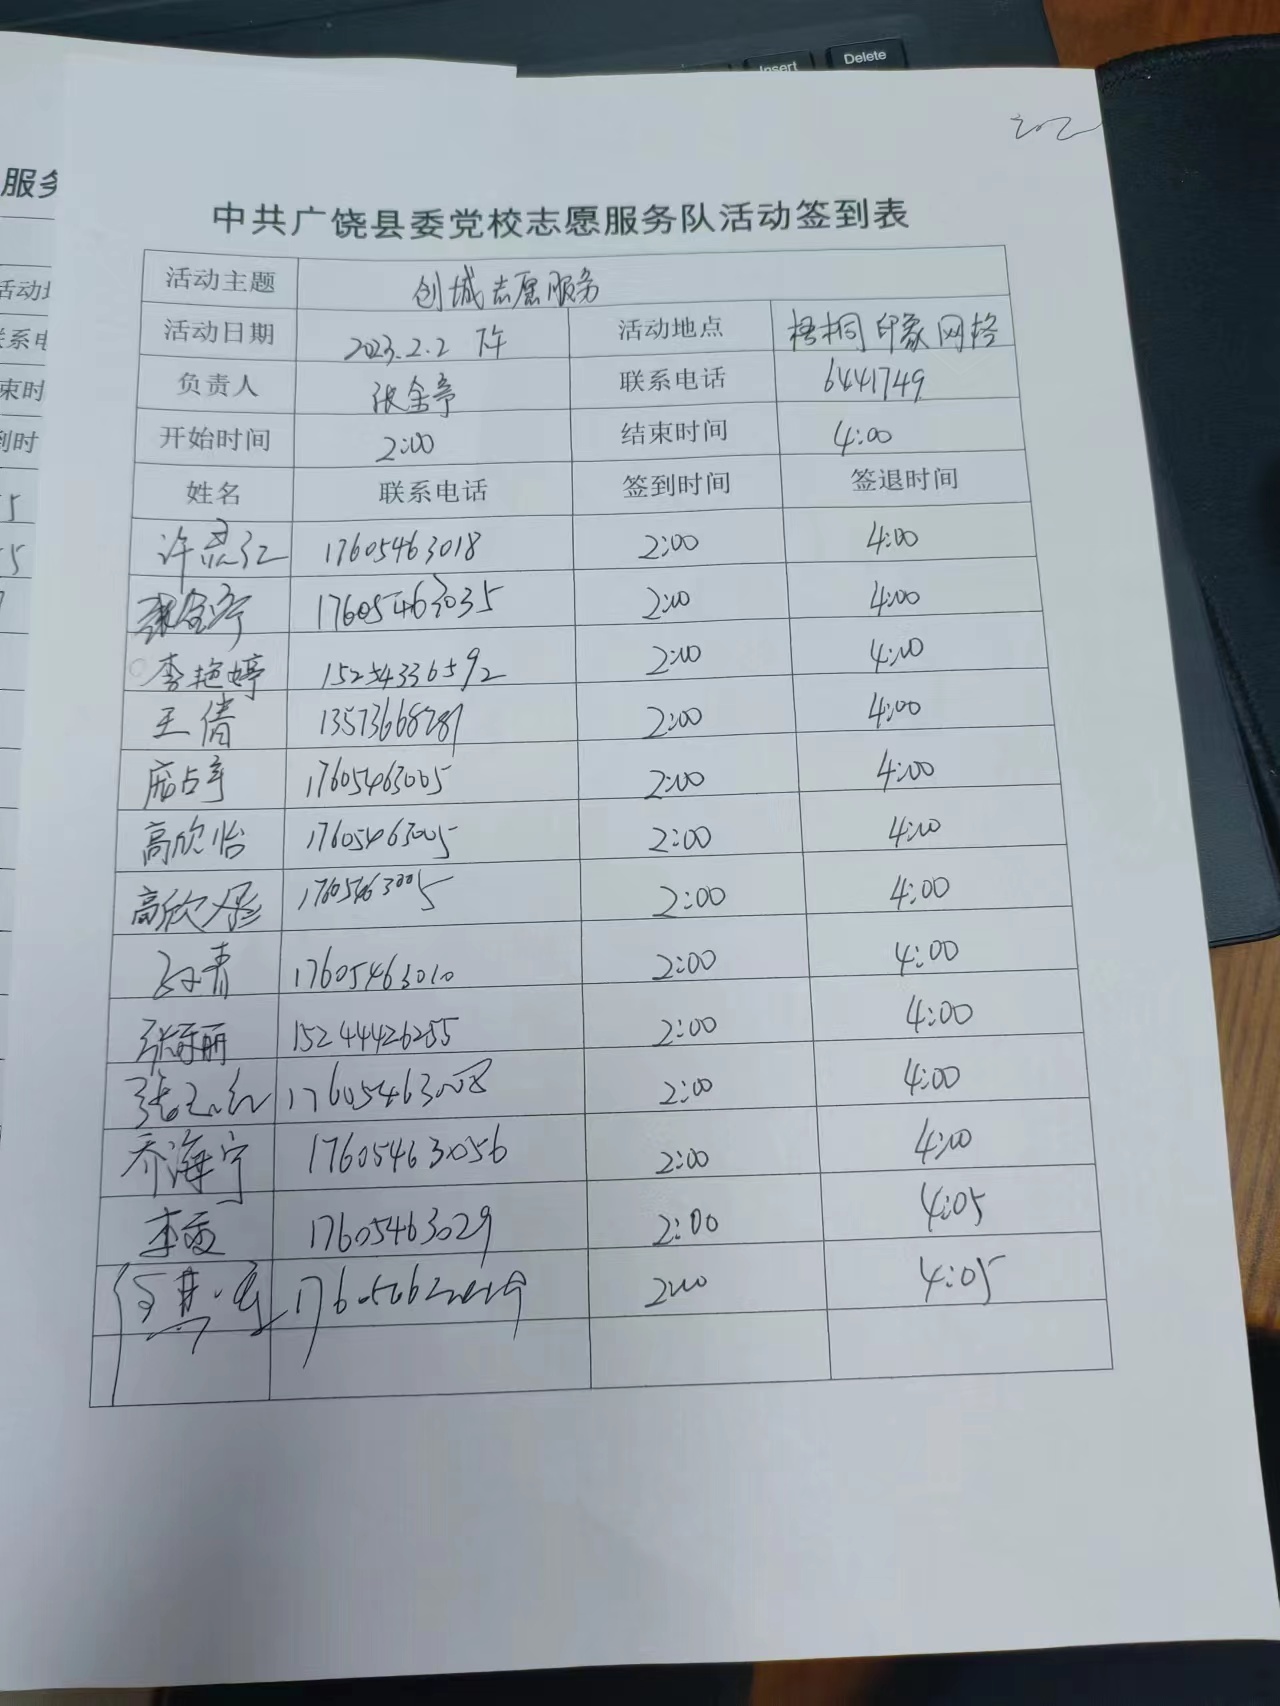 Insert
Delete
202
服务
活动地
联系电
束时
到时
中共广饶县委党校志愿服务队活动签到表
活动主题 创城志愿服务
活动日期 2023.2.2 下午 活动地点 梧桐印象网格
负责人 张金亭 联系电话 6441749
开始时间 2:00 结束时间 4:00
姓名 联系电话 签到时间 签退时间
17605463018 2:00 4:00
张金亭 17605463035 2:00 4:00
李艳婷 15254336592 2:00 4:00
王倩 13573668787 2:00 4:00
17605463005 2:00 4:00
高欣怡 17605463005 2:00 4:00
高欣 17605463005 2:00 4:00
17605463010 2:00 4:00
张 丽 15244426255 2:00 4:00
张 红 17605463008 2:00 4:00
乔海宁 17605463056 2:00 4:00
李 17605463029 2:00 4:05
2:00 4:05